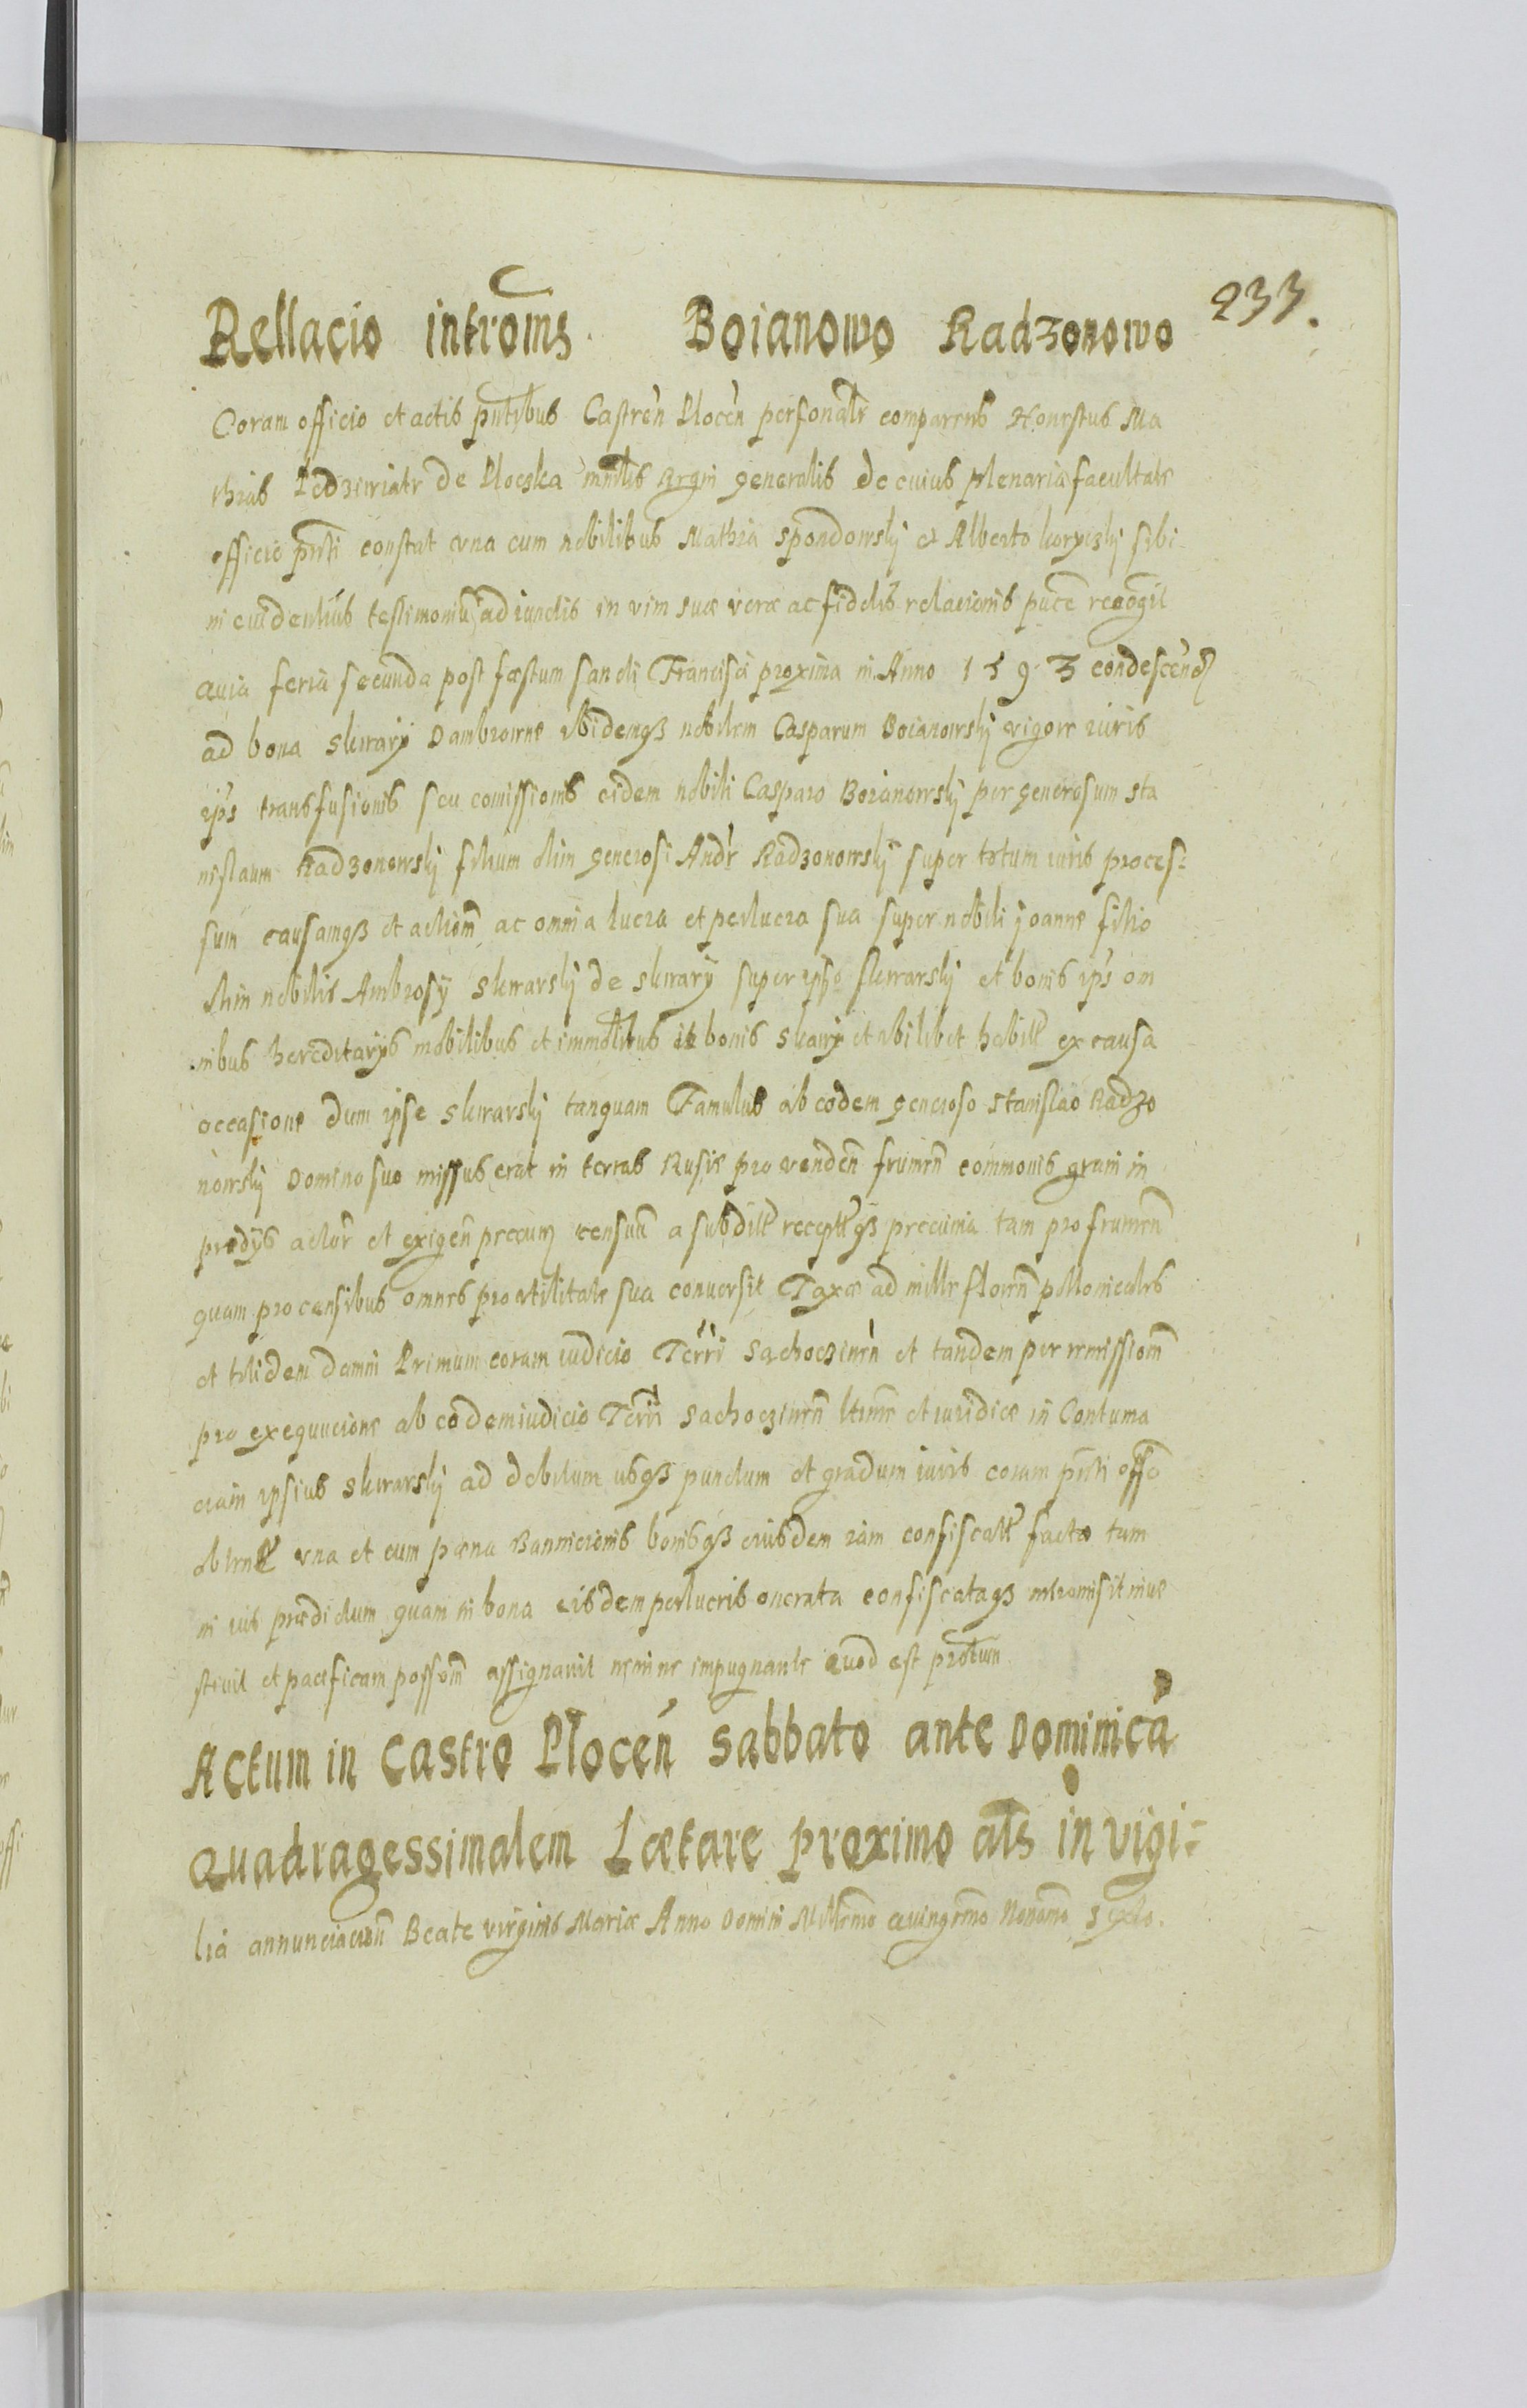 233.
Rellacio introms Boianowo Radzonowo
Coram officio et actis pntibus Castren Plocen personalr comparens Honestus Ma
thias de Ploczka mnlis Regni generalis de cuius plenaria facultate
officio pnti constat vna cum nobilibus Mathia Spondowskij et Alberto sibi
in euidentius testimoniu adiunctis in vim suæ veræ ac fidelis relacionis puce recogit
quia feria secunda post fæstum sancti Francisci proxima in Anno 1593 condescend
ad bona Skwary Dambrowne ibidemqs nobilem Casparum Boianowskij vigore iuris
ips transfusionis seu comissionis eidem nobili Casparo Boianowskij per generosum Sta
nislaum Radzonowskij filium olim generosi Andr Radzonowskij super totum iuris proces-
sum causamqs et actiom ac omnia lucra et perlucra sua super nobili Joanne filio
olim nobilis Ambrosij Skwarskij de Skwary super ipso Skwarskij et bonis ips om
nibus hereditarys mobilibus et immobibus bonis Skwary et vbilibet habitt ex causa
occasione dum ipse Skwarskij tanquam Famulus ab eodem generoso Stanislao Radzo
nowskij Domino suo missus erat in terras Rusiæ pro venden frumen commouis grani in
predys actor et exigen pecun censuu a subditt recepttqs peccunia tam pro frumen
quam pro censibus omnes pro vtilitate sua conuersit Taxæ ad mille floren pollonicales
et totidem damni Primum coram iudicio Terri Sachoczinen et tandem per remissiom
pro exequucione ab eodem iudicio Terri Sachoczinen ltime et iuridice in Contuma
ciam ipsius Skwarskij ad debitum usqs punctum et gradum iuris coram pnti offo
obtent vna et cum pæna Bannicionis bonisqs eiusdem iam confiscatt facta tam
in ius prædictum quam in bona eisdem perlucris onerata confiscataqs intromisit inue
stiuit et pacificam possem assignauit nemine impugnante Quod est prottum
Actum in Castro Plocen Sabbato ante Dominica
Quadragessimalem Lætare proximo als in vigi-
lia annunciacion Beate virginis Mariæ Anno Domini Millemo quingemo Nonomo Sexto.